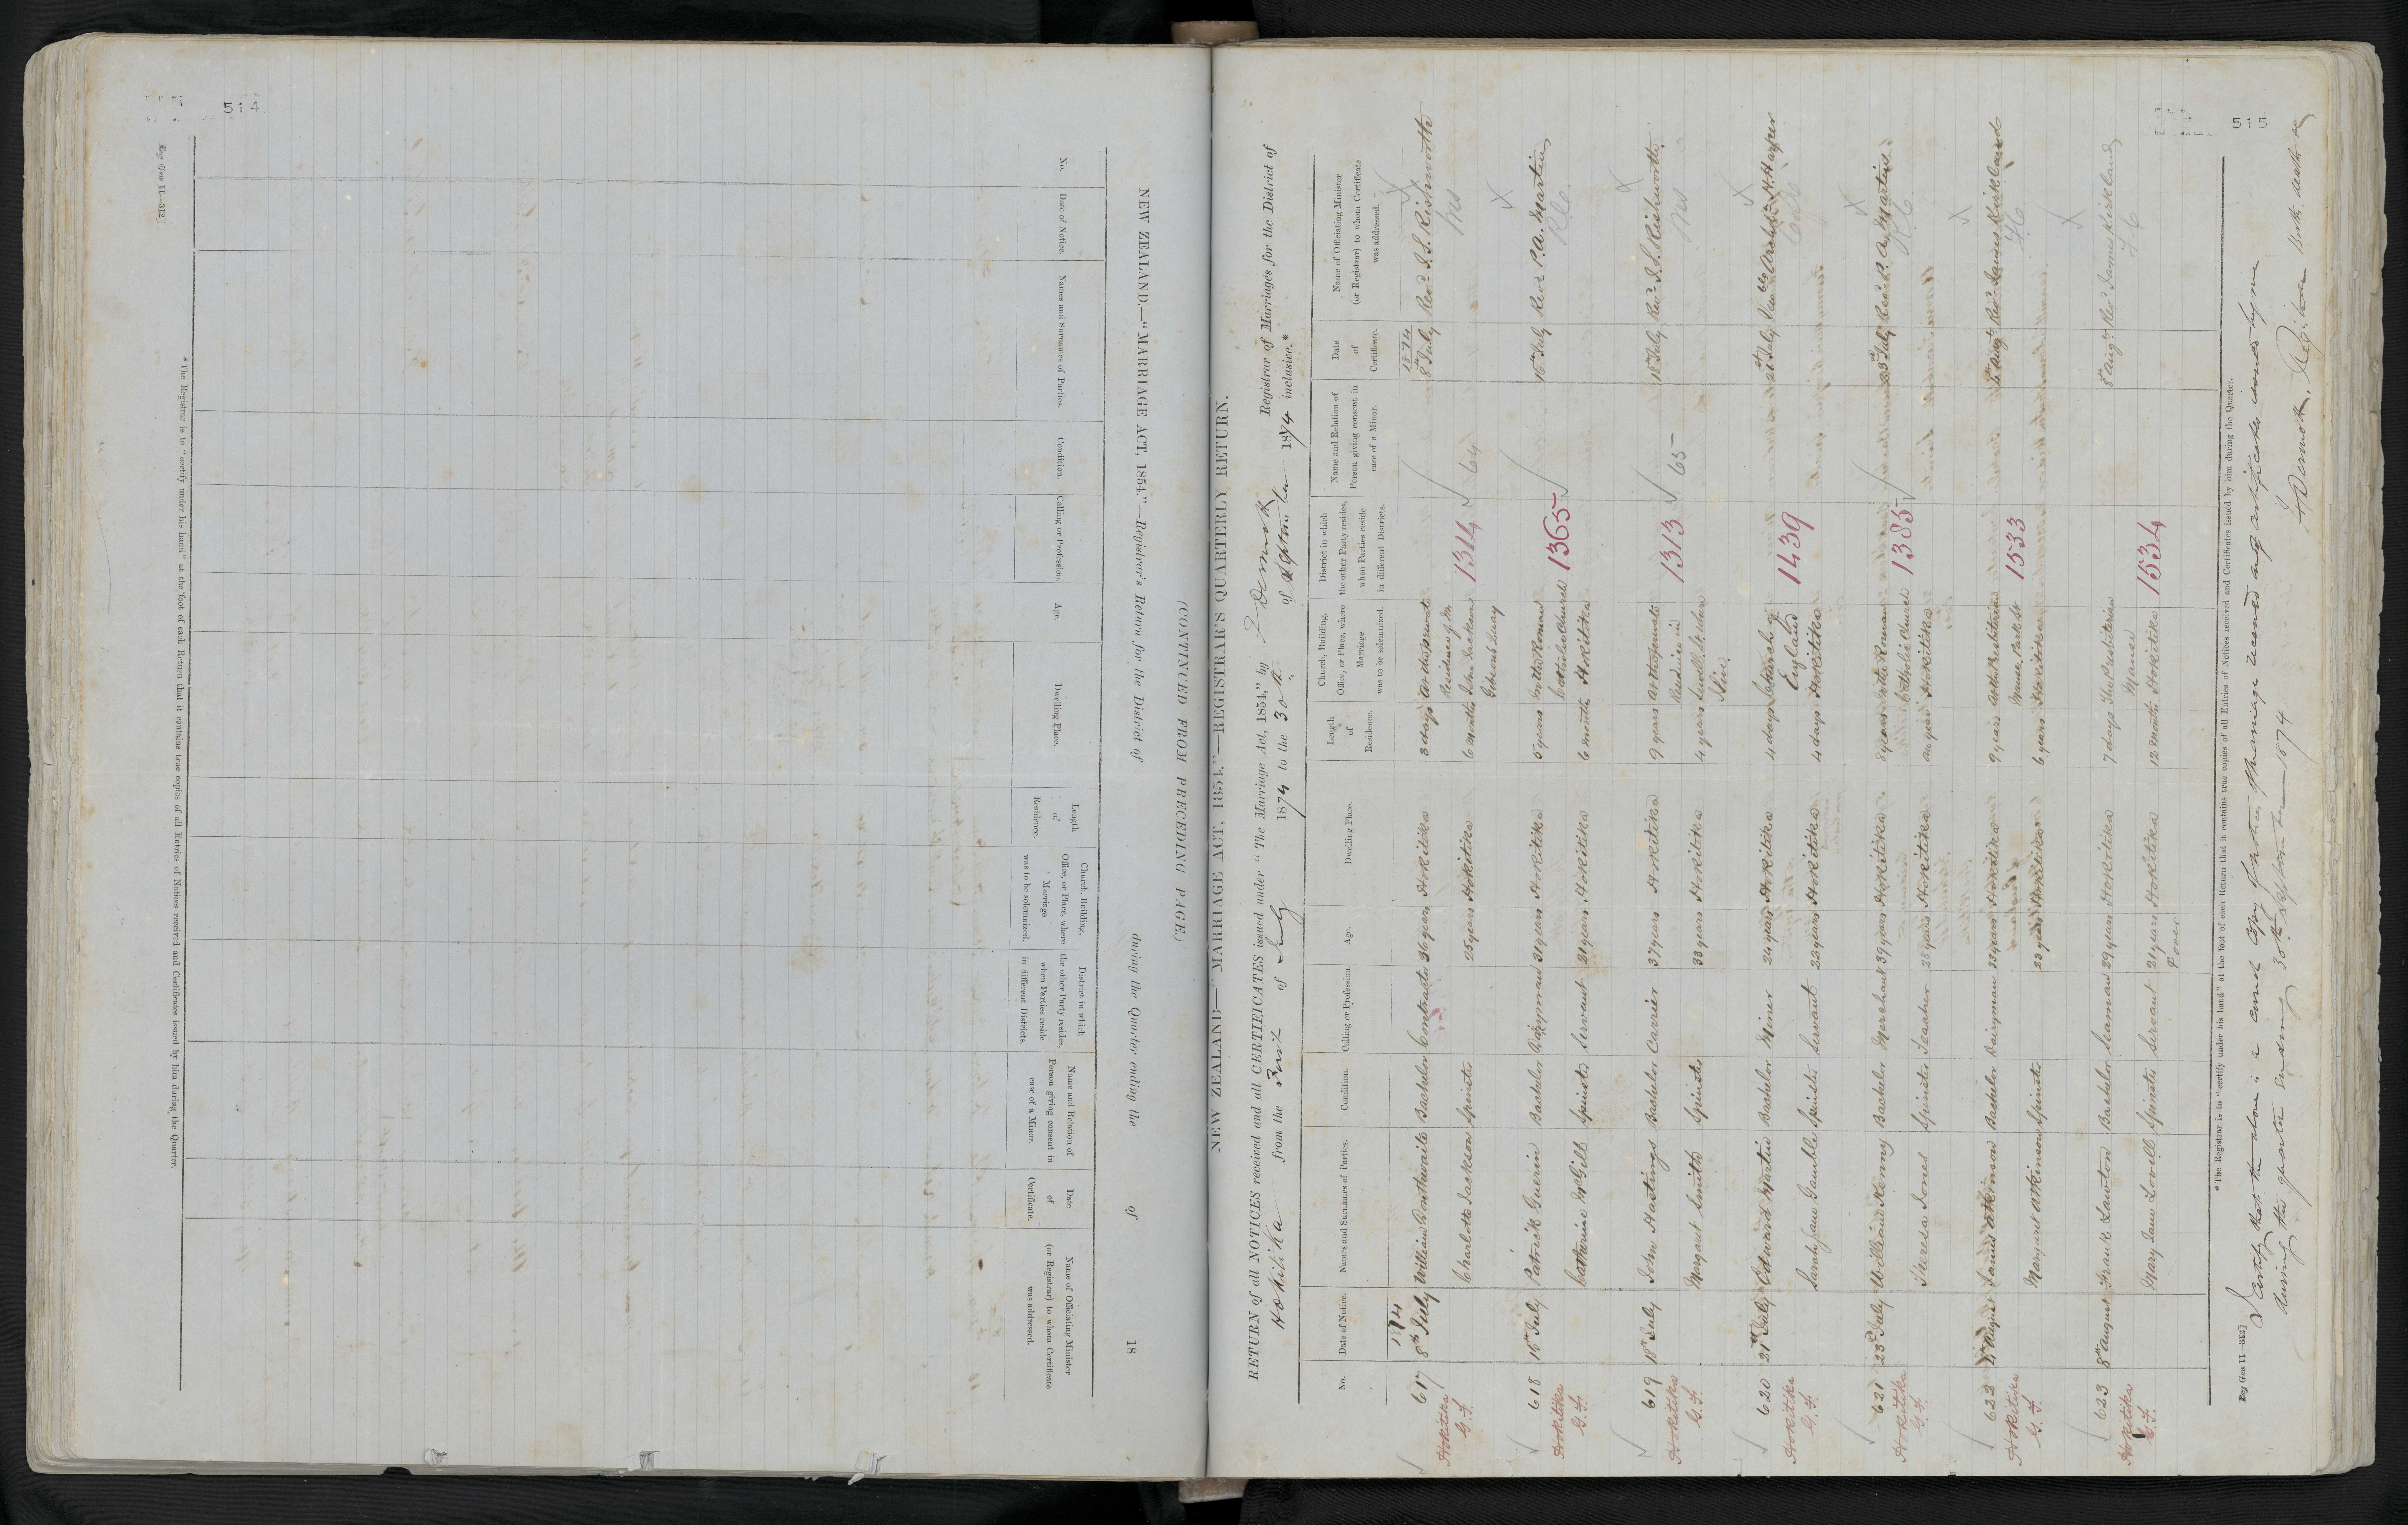 514
Reg Gen 11—312]
NEW ZEALAND.—"MARRIAGE ACT, 1854."—Registrar's Return for the District of during the Quarter ending the of 18
(CONTINUED FROM PRECEDING PAGE.)
No.
Date of Notice.
Names and Surnames of Parties.
Condition.
Calling or Profession.
Age.
Dwelling Place.
Length
of
Residence.
Church, Building,
Office, or Place, where
Marriage
was to be solemnized.
District in which
the other Party resides,
when Parties reside
in different Districts.
Name and Relation of
Person giving consent in
case of a Minor.
Date
of
Certificate.
Name of Officiating Minister
(or Registrar) to whom Certificate
was addressed.
*The Registrar is to "certify under his hand" at the foot of each Return that it contains true copies of all Entries of Notices received and Certificates issued by him during the Quarter.
515
NEW ZEALAND—"MARRIAGE ACT, 1854."—REGISTRAR'S QUARTERLY RETURN.
RETURN of all NOTICES received and all CERTIFICATES issued under "The Marriage Act, 1854," by Dermott Registrar of Marriages for the District of
Hokitika from the First of July 1874 to the 30th of September 1874 inclusive.*
No.
Date of Notice.
Names and Surnames of Parties.
Condition.
Calling or Profession.
Age.
Dwelling Place.
Length
of
Residence.
Church, Building,
Office, or Place, where
Marriage
was to be solemnized.
District in which
the other Party resides,
when Parties reside
in different Districts.
Name and Relation of
Person giving consent in
case of a Minor.
Date
of
Certificate.
Name of Officiating Minister
(or Registrar) to whom Certificate
was addressed.
1874 1874
617 8th July William Bonthwaite Bachelor Contractor 36 years Hokitika 3 days At the private 8th July Revd. J. S. Rishworth
Residence of Mr
Hokitika Charlotte Jackson Spinster 25 years Hokitika 6 months John Jackson 1314 64
G.F. Gibsons Quay
618 15th July Patrick Guerin Bachelor 31 years Hokitika 5 years In the Roman 15th July Revd P. A. Martin
Catholic Church 1365
Hokitika Catherine McGill Spinster Servant 21 years Hokitika 6 months Hokitika
G.F.
619 18th July John Hastings Bachelor Carrier 37 years Hokitika 9 years At the private 18th July Revd. J. S. Rishworth
Residence in 1313 65
Hokitika Margaret Smith Spinster 33 years Hokitika 4 years
G.F.
620 21st July Edward Martin Bachelor Miner 24 years Hokitika 4 days Church of 21st July H. Harper
England 1439
Hokitika Sarah Jane Gamble Spinster Servant 23 years Hokitika 4 days Hokitika
G.F.
621 23rd July William Kenny Bachelor Merchant 39 years Hokitika 8 years In the Roman 23rd July Revd. P. A. Martin
Catholic Church 1385
Hokitika Theresa Jones Spinster Teacher 28 years Hokitika one year Hokitika
G.F.
622 August Atkinson Bachelor Dairyman 33 years Hokitika 9 years At the Presbyterian Augt Revd. James Kirkland
Manse, Park St 1533
Hokitika Margaret Atkinson Spinster 23 years Hokitika 6 years Hokitika
G.F.
623 8th August Frank Lawton Bachelor Seaman 29 years Hokitika 7 days The Presbyterian 8th Augt Revd. James Kirkland
Manse
Hokitika Mary Jane Lovell Spinster Servant 21 years Hokitika 12 months Hokitika 1534
G.F. & over
*The Registrar is to "certify under his hand" at the foot of each Return that it contains true copies of all Entries of Notices received and Certificates issued by him during the Quarter.
Reg Gen 11—312]
I certify that the above is a correct copy of notices of marriage received and certificates issued by me
during the quarter ending 30th September 1874
Dermott, Registrar